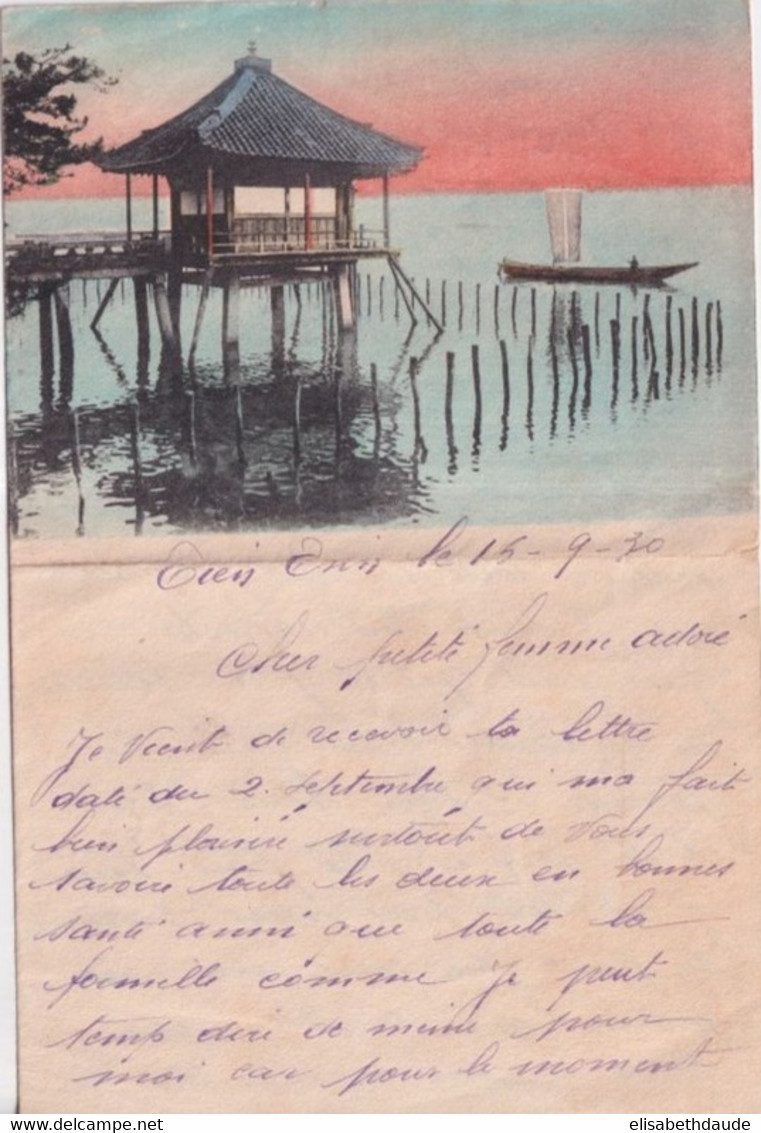 Tien Tsin le 15-9-30
Cher petite femme adoré
Je vient de recevoir ta lettre
daté du 2. Septembre qui ma fait
bien plaisire surtout de vous
savoire toute les deux en bonnes
santé ainsi que toute la
famille comme Je peut
temp dire de même pour
moi car pour le moment
elisabethdaude